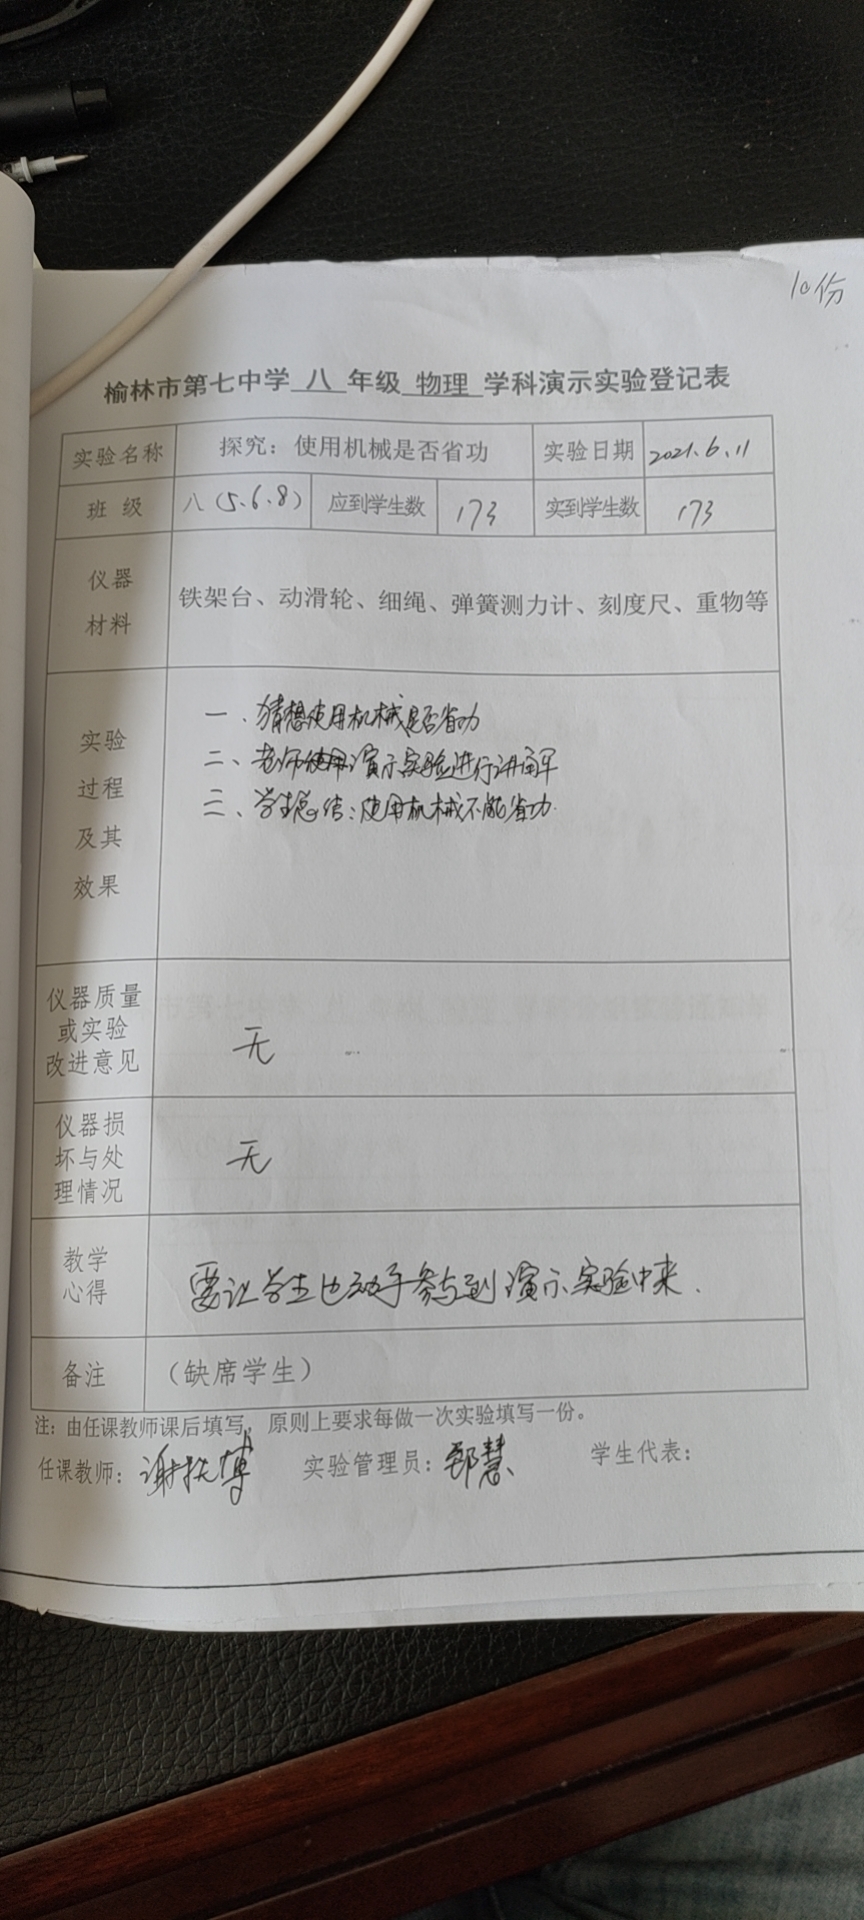 10份
榆林市第七中学 八 年级 物理 学科演示实验登记表
实验名称 探究：使用机械是否省功 实验日期 2021.6.11
班 级 八（5.6.8） 应到学生数 173 实到学生数 173
仪器
材料
铁架台、动滑轮、细绳、弹簧测力计、刻度尺、重物等
实验
过程
及其
效果
一、猜想使用机械是否省功
二、老师使用演示实验进行讲解
三、学生总结：使用机械不能省功.
仪器质量
或实验
改进意见
无
仪器损
坏与处
理情况
无
教学
心得
要让学生也动手参与到演示实验中来.
备注 （缺席学生）
注：由任课教师课后填写，原则上要求每做一次实验填写一份。
任课教师： 实验管理员： 学生代表：